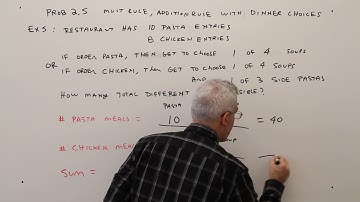 PROB 2.5 MULT RULE, ADDITION RULE WITH DINNER CHOICES
EX5: RESTAURANT HAS 10 PASTA ENTRIES
8 CHICKEN ENTRIES
IF ORDER PASTA, THEN GET TO CHOOSE 1 OF 4 SOUPS
OR IF ORDER CHICKEN, THEN GET TO CHOOSE 1 OF 4 SOUPS
AND 1 OF 3 SIDE PASTAS
HOW MANY TOTAL DIFFERENT SIBLE?
PASTA
# PASTA MEALS = 10 = 40
# CHICKEN MEA
SUM =